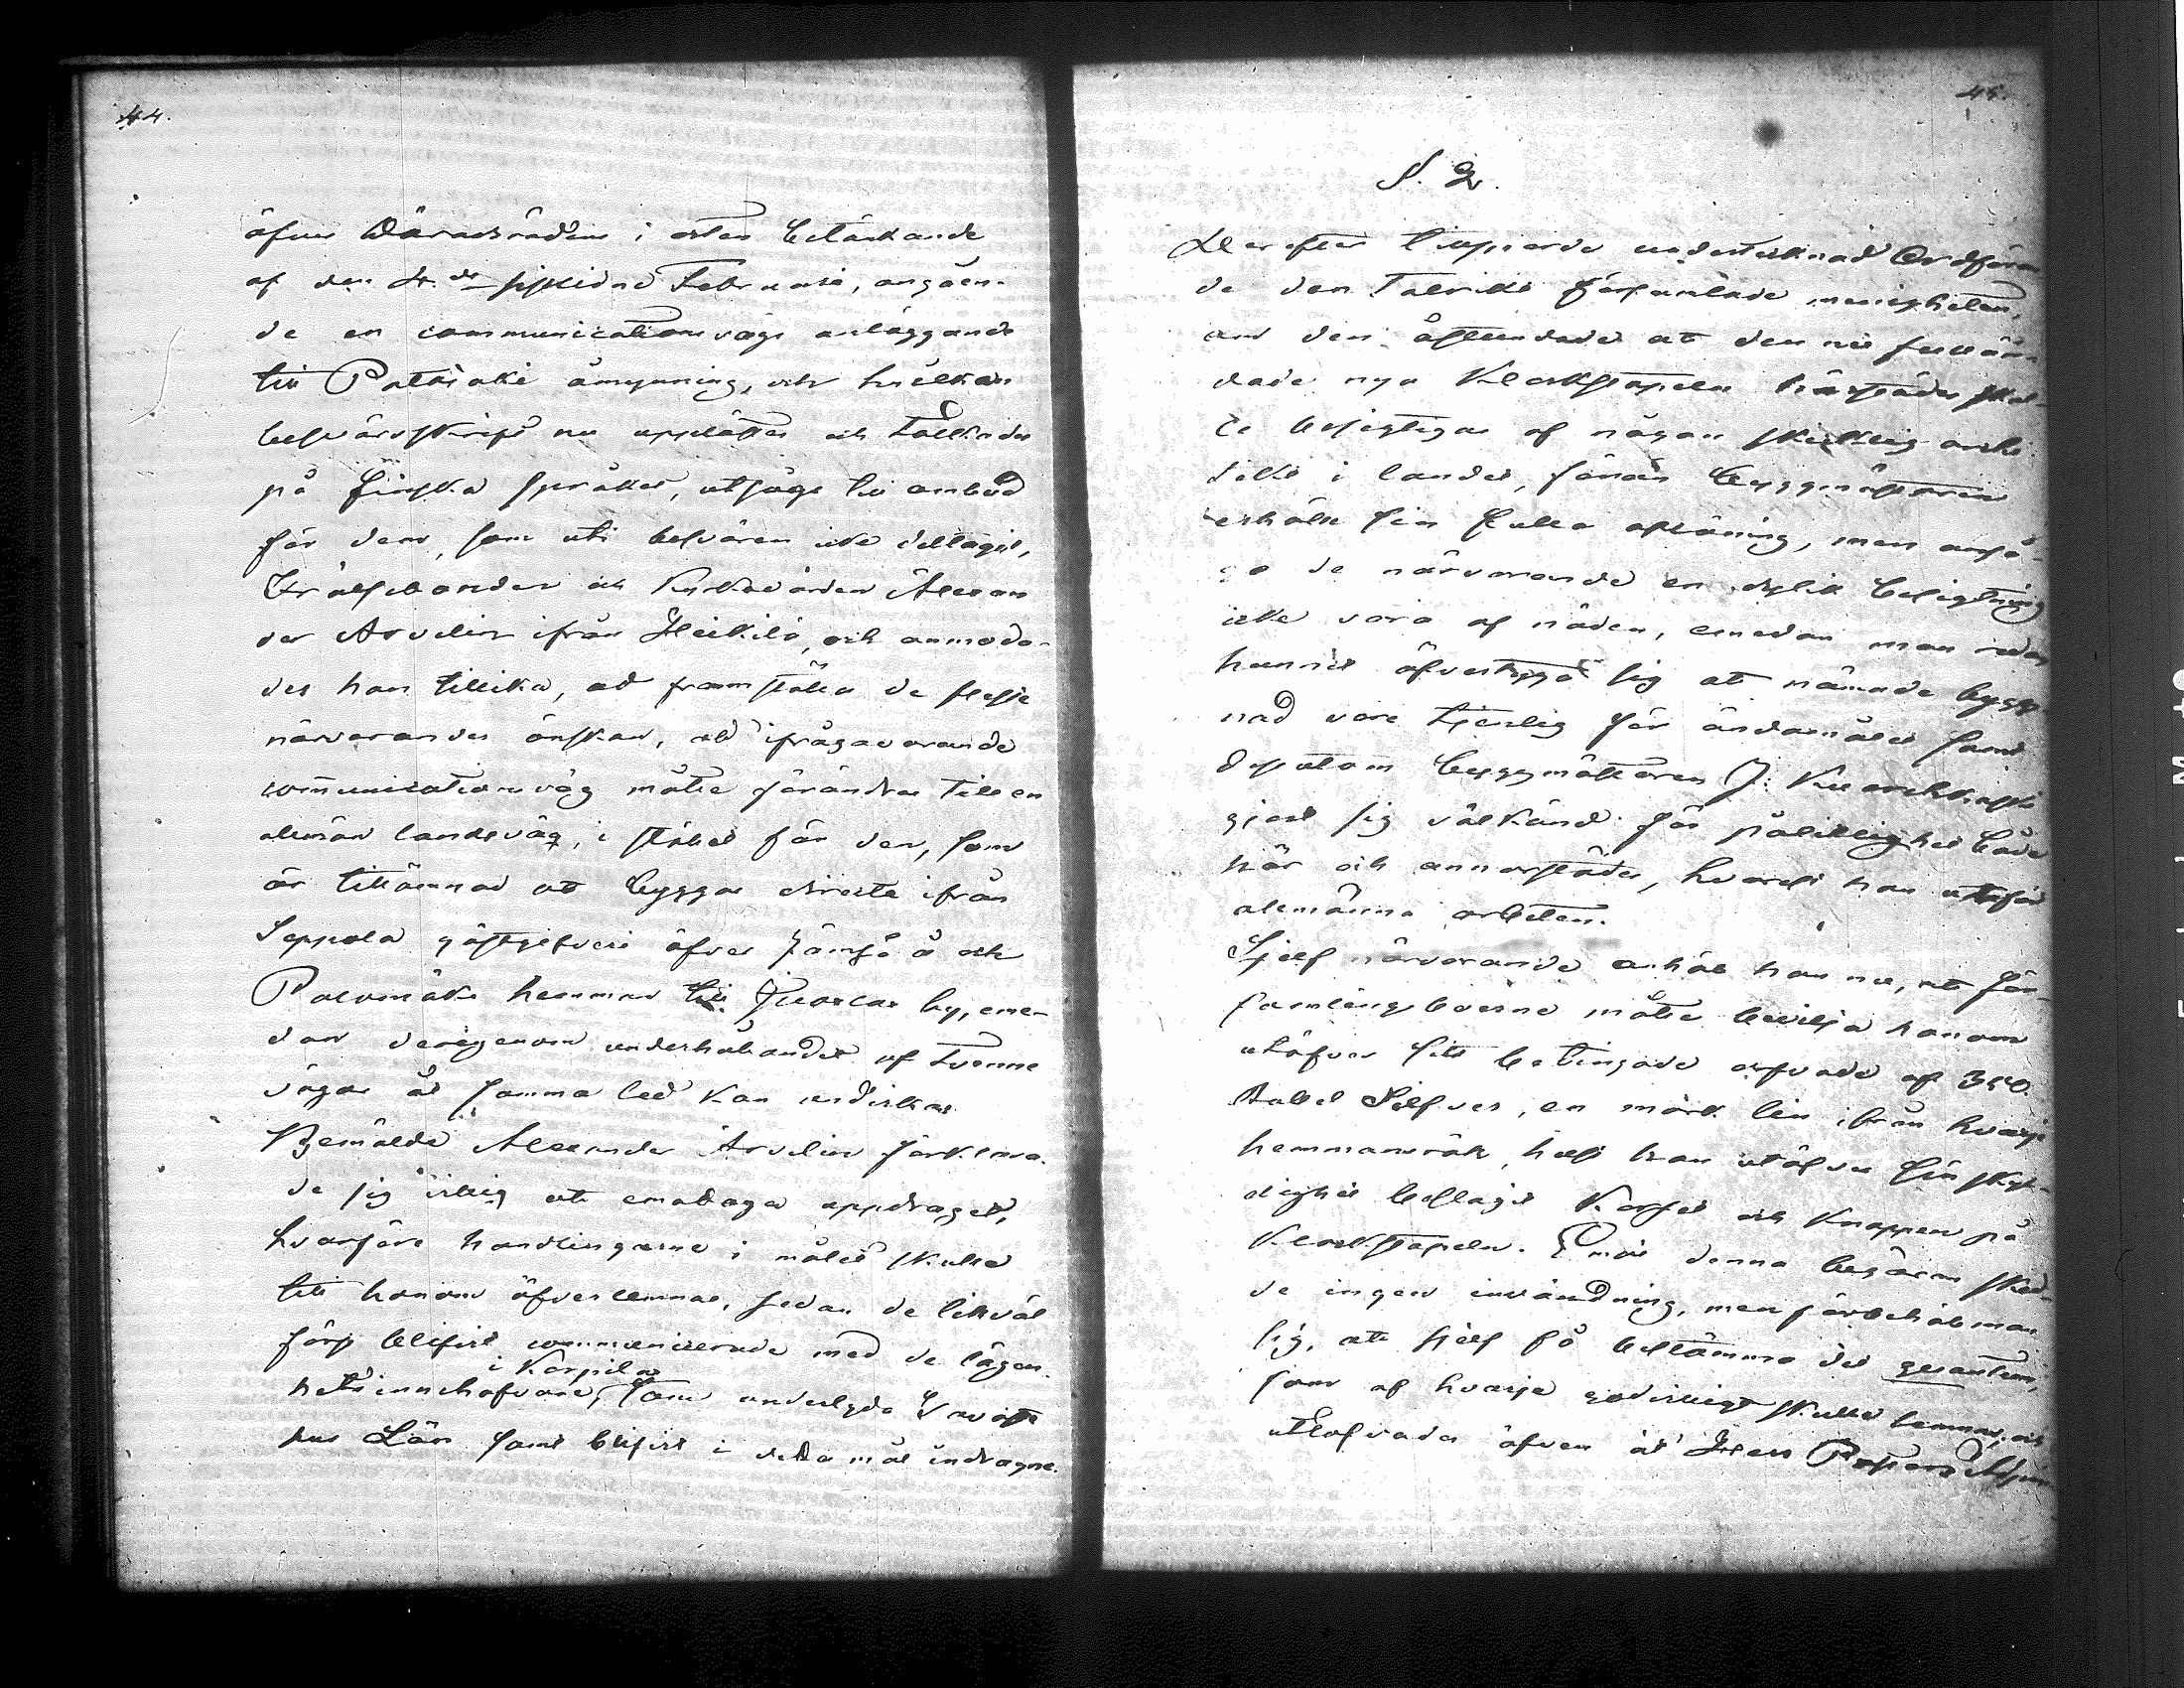 44.
öfver Häradsrådens i orten betänkande
af den 4.de sistledne Februari, angåen-
de en communicationsvägs anläggande
till Patajoki åmynning, och hvilken
besvärsskrift nu upplästes och tolkades
på Finska språket, utsågs till ombud
för dem, som uti besvären icke deltagit,
Frälsebonden och Kyrkovärden Alexan
der Arvelin ifrån Heikilä, och anmoda-
des han tillika, att framställa de fleste
närvarandes önskan, att ifrågavarande
communicationsväg måtte förändras till en
allmän landsväg, i stället för den, som
är tillämnad att byggas directe ifrån
Seppola gästgifveri öfver Jämsä å och
Patamäki hemman till Juokslax by, eme-
dan derigenom underhållandet af tvenne
vägar åt samma led kan undvikas.
Bemälde Alexander Arvelin förklara-
de sig villig att emottaga uppdraget,
hvarföre handlingarne i målet skulle
till honom öfverlemnas, sedan de likväl
först blifvit communicerade med de lägen-
i Korpilax
hetsinnehafvare, som underlyda Tavaste
hus Län samt blifvit i detta mål indragne.
45.
§. 2.
Derefter tillsporde undertecknad Ordföran
de den talrikt församlade menigheten,
om den åstundade att den nu fullän-
dade nya Klockstapeln härstädes skul-
le besigtigas af någon skicklig archi
tekt i landet, förrän byggmästaren
erhölle sin fulla aflöning, men anså-
go de närvarande en dylik besigtning
icke vara af nöden, emedan man redan
hunnit öfvertyga sig att nämnde bygg-
nad vore tjenlig för ändamålet samt
dessutom byggmästaren J.
gjort sig välkänd för pålitlighet både
här och annorstädes, hvarest han utfört
allmänna arbeten.
Sjelf närvarande anhöll han nu, att för-
samlingsboerne måtte bevilja honom
utöfver sitt betingade arfvode af 350.
Rubel Silfver, en mark lin ifrån hvarje
hemmansrök, helst han utöfver sin skyl-
dighet beslagit Korset och Knappen på
Klockstapeln. Emot denna begäran sked-
de ingen invändning, men förbehöll man
sig, att sjelf få bestämma det quantum,
som af hvarje godvilligt skulle lemnas, och
utlofvades äfven åt Herr Pastors